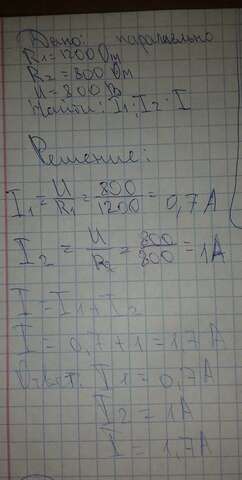 Дано: паралельно
R1=1200 Ом
R2=800 Ом
U=800 В
Найти: I1; I2; I
Решение:
I1 = U/R1 = 800/1200 = 0,7 А
I2 = U/R2 = 800/800 = 1А
I=I1+I2
I = 0,7+1=1,7 А
Ответ: I1=0,7А
I2 = 1А
I = 1,7А